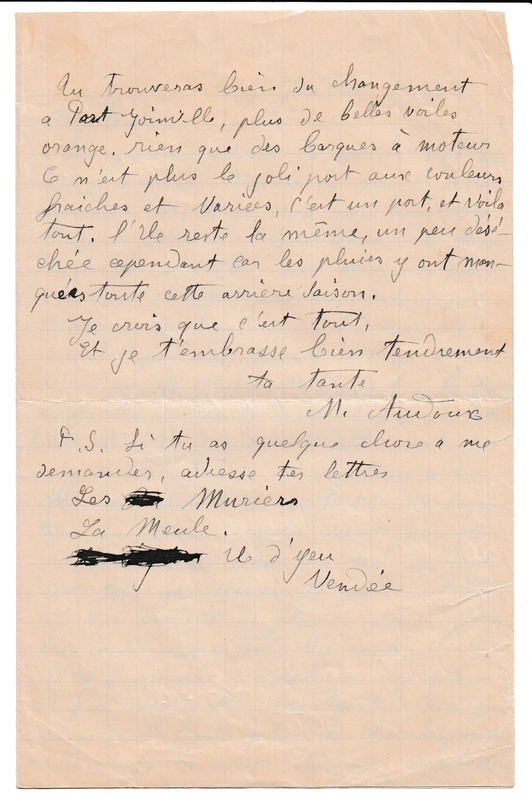 Tu trouveras bien du changement
a Port Joinville, plus de belles voiles
orange. rien que des barques à moteur
C n'est plus le joli port aux couleurs
fraiches et variées, c'est un port, et voila
tout. l'Ile reste la même, un peu désé-
chée cependant car les pluies y ont man-
quées toute cette arrière saison.
Je crois que c'est tout.
Et je t'embrasse bien tendrement
ta tante
M. Audoux
P.S. Si tu as quelque chose a me
demander, adresse tes lettres
Les Muriers
La Meule.
Ile d'yeu
Vendée